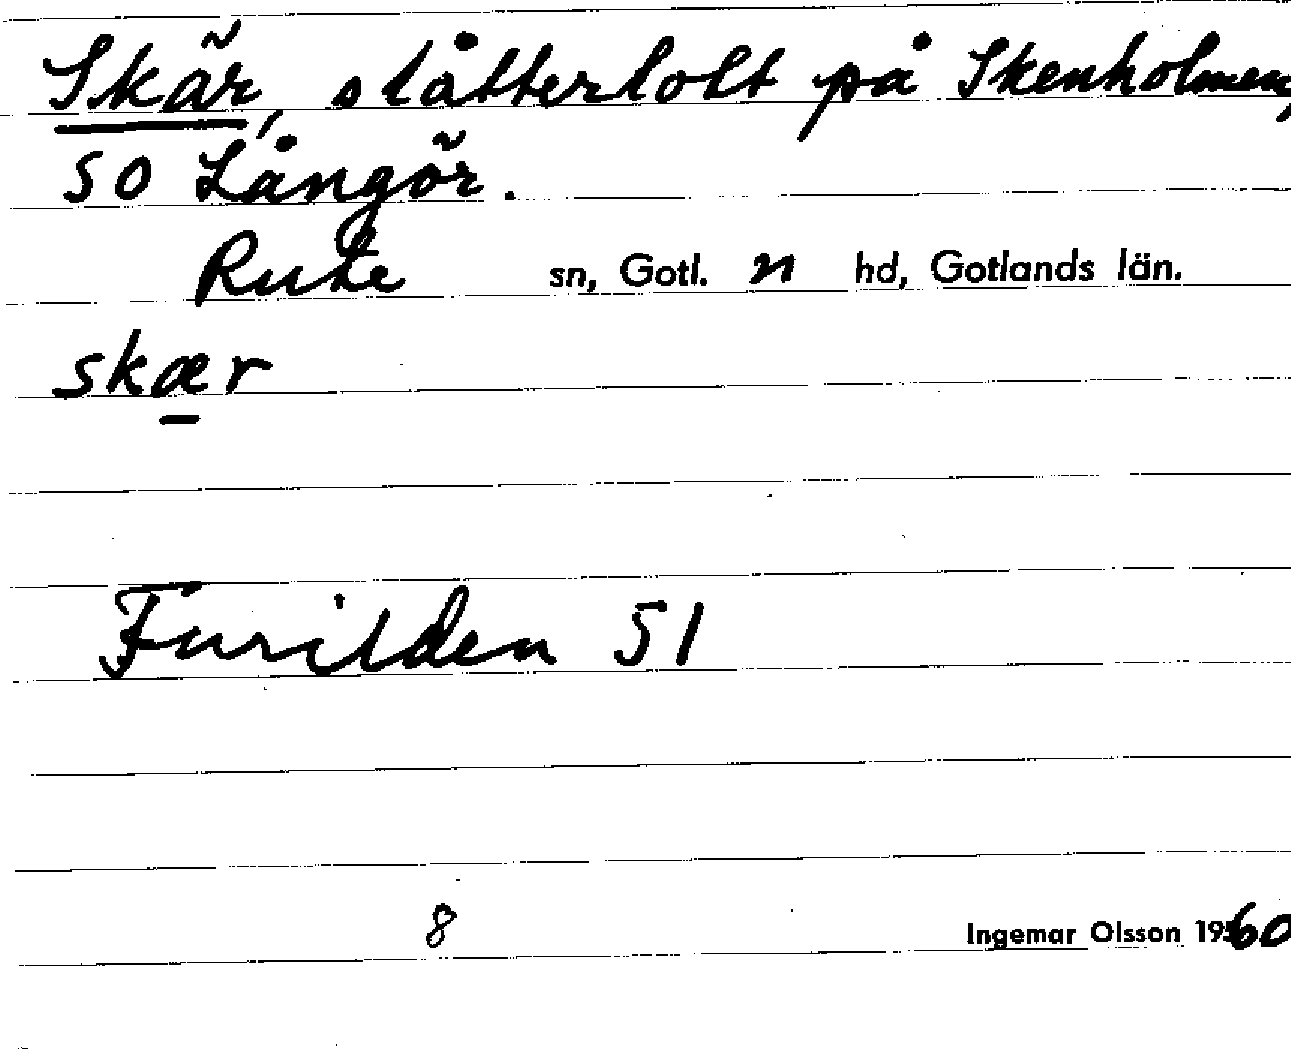 Skär, slåtterlott på Skenholmen,
SO Långör.
Rute sn, Gotl. n hd, Gotlands län.
skær
Furilden 51
8
Ingemar Olsson 1960